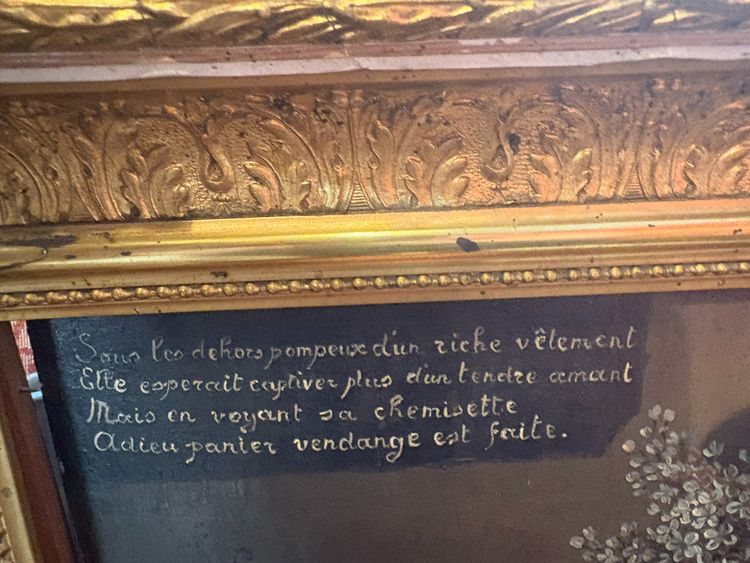 Sous les dehors pompeux d'un riche vêtement
Elle esperait captiver plus d'un tendre amant
Mais en voyant sa chemisette
Adieu panier vendange est faite.